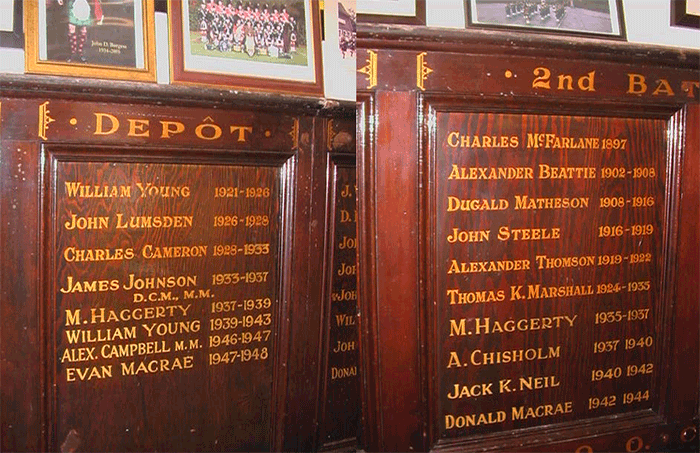 John D. Burgess
DEPÔT
WILLIAM YOUNG 1921-1926
JOHN LUMSDEN 1926-1928
CHARLES CAMERON 1928-1933
JAMES JOHNSON 1933-1937
D.C.M., M.M.
M. HAGGERTY 1937-1939
WILLIAM YOUNG 1939-1943
ALEX. CAMPBELL M.M. 1946-1947
EVAN MACRAE 1947-1948
J.
D.
JOHN
JOHN
JOHN
WIL
JOHN
DONAL
2ND BAT
CHARLES MCFARLANE 1897
ALEXANDER BEATTIE 1902-1908
DUGALD MATHESON 1908-1916
JOHN STEELE 1916-1919
ALEXANDER THOMSON 1919-1922
THOMAS K. MARSHALL 1924-1935
M. HAGGERTY 1935-1937
A. CHISHOLM 1937 1940
JACK K. NEIL 1940 1942
DONALD MACRAE 1942 1944